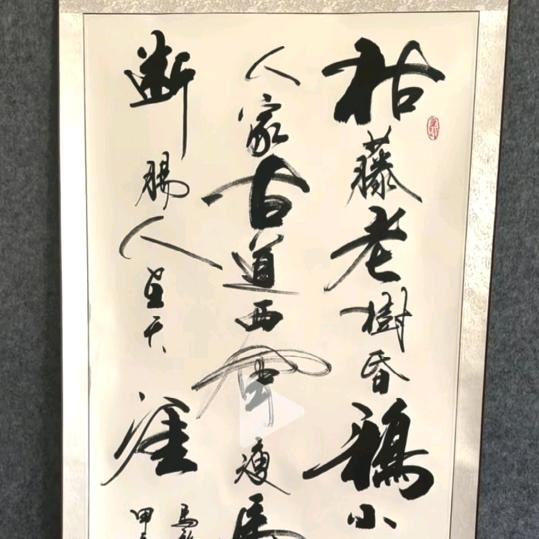 枯藤老樹昏鴉小
人家古道西風瘦馬
断腸人在天涯
馬致
甲